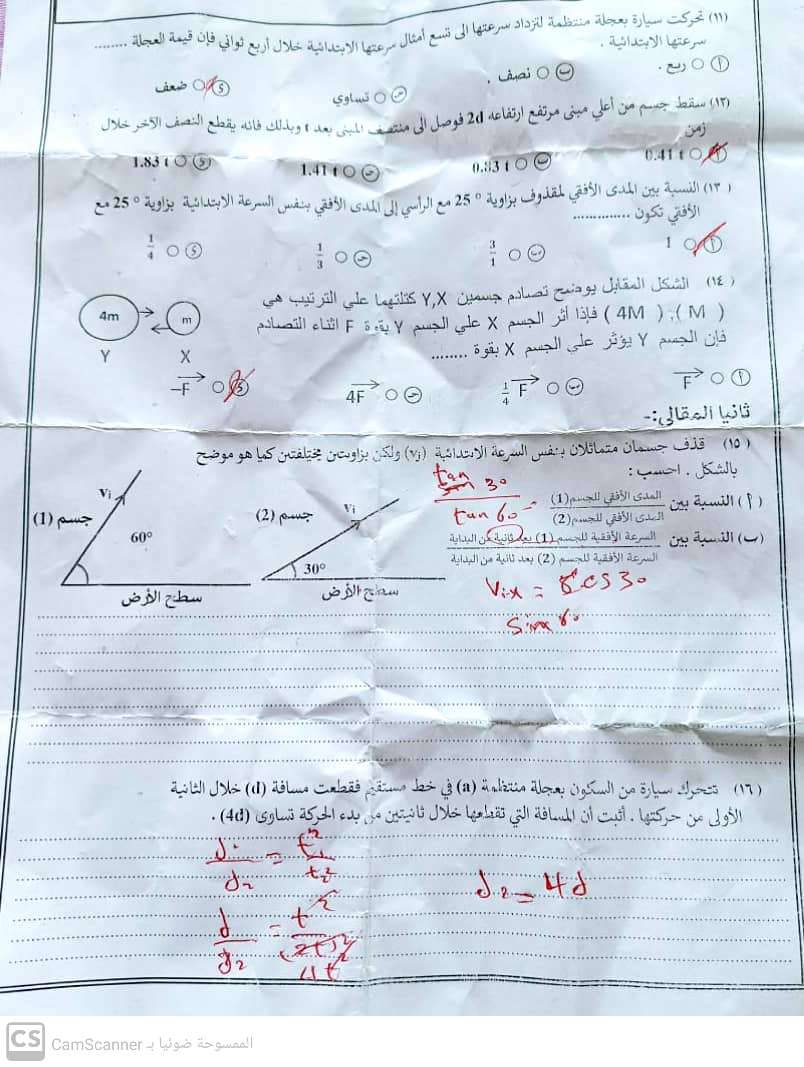 (١١) تحركت سيارة بعجلة منتظمة لتزداد سرعتها الى تسع أمثال سرعتها الابتدائية خلال أربع ثواني فإن قيمة العجلة ........
سرعتها الابتدائية .
أ ربع . ب نصف . ج تساوي د ضعف
(١٢) سقط جسم من أعلي مبنى مرتفع ارتفاعه 2d فوصل الى منتصف المبنى بعد t وبذلك فانه يقطع النصف الآخر خلال
زمن
أ 0.41 t ب 0.83 t ج 1.41 t د 1.83 t
(١٣) النسبة بين المدى الأفقي لمقذوف بزاوية 25 ° مع الرأسي إلى المدى الأفقي بنفس السرعة الابتدائية بزاوية 25 ° مع
الأفقي تكون .............
أ 1 ب 3/1 ج 1/3 د 1/4
(١٤) الشكل المقابل يوضح تصادم جسمين Y,X كتلتهما علي الترتيب هي
( M ) , ( 4M ) فإذا أثر الجسم X علي الجسم Y بقوة F اثناء التصادم
فإن الجسم Y يؤثر علي الجسم X بقوة ........
4m m
Y X
أ F ب 1/4 F ج 4F د −F
ثانيا المقالى:-
(١٥) قذف جسمان متماثلان بنفس السرعة الابتدائية (vi) ولكن بزاويتين مختلفتين كما هو موضح
بالشكل . احسب :
(أ) النسبة بين المدى الأفقي للجسم(1) / المدى الأفقي للجسم(2)
tan 30
tan 60
(ب) النسبة بين السرعة الأفقية للجسم (1) بعد ثانية من البداية / السرعة الأفقية للجسم (2) بعد ثانية من البداية
Vi
جسم (1)
60°
سطح الأرض
Vi
جسم (2)
30°
سطح الأرض
Vix =
30
(١٦) تتحرك سيارة من السكون بعجلة منتظمة (a) في خط مستقيم فقطعت مسافة (d) خلال الثانية
الأولى من حركتها . أثبت أن المسافة التي تقطعها خلال ثانيتين من بدء الحركة تساوى (4d) .
d1/d2 = t1²/t2²
d2 = 4d
d/d2 = t²/(2t)²
4t²
CS CamScanner الممسوحة ضوئيا بـ